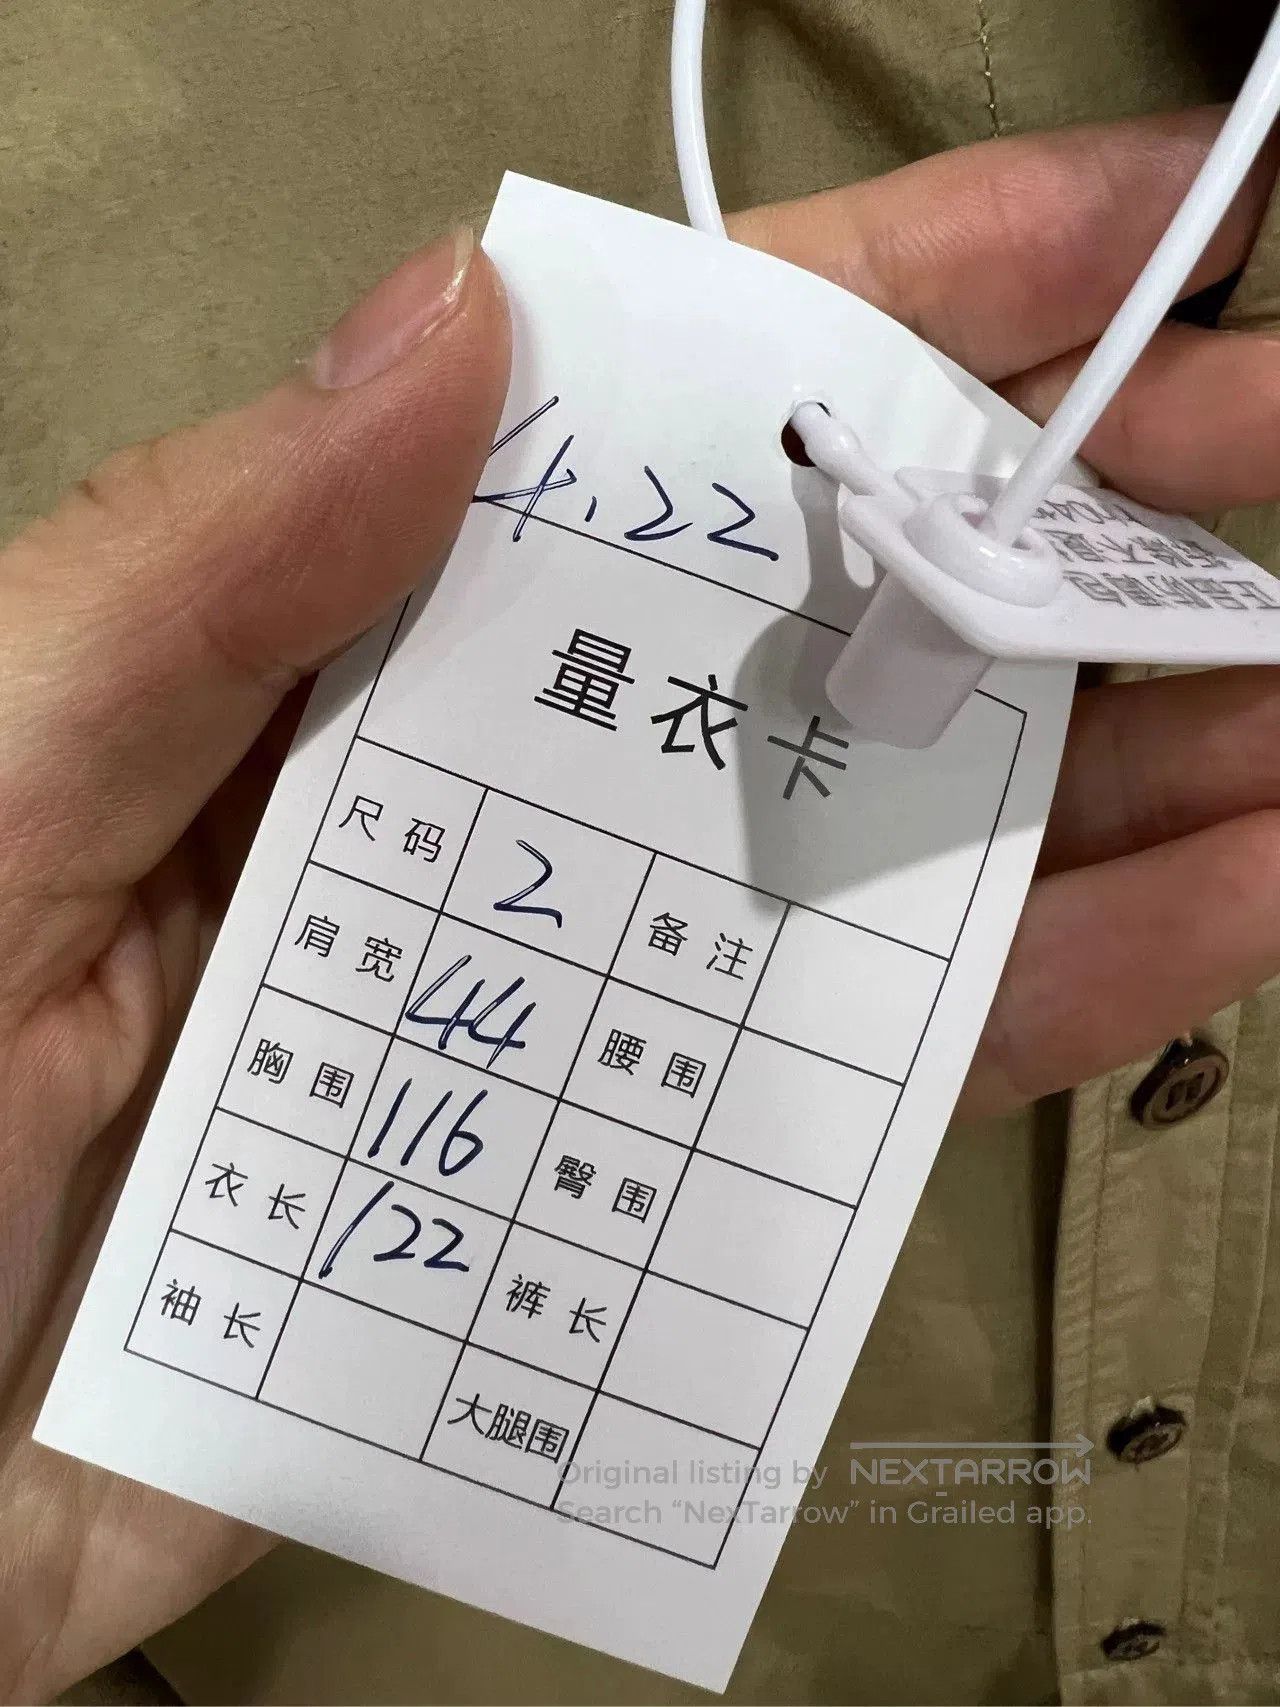 4.22
量衣卡
尺码 2 备注
肩宽 44 腰围
胸围 116 臀围
衣长 122 裤长
袖长 大腿围
Original listing by NEXTARROW
Search “NexTarrow” in Grailed app.